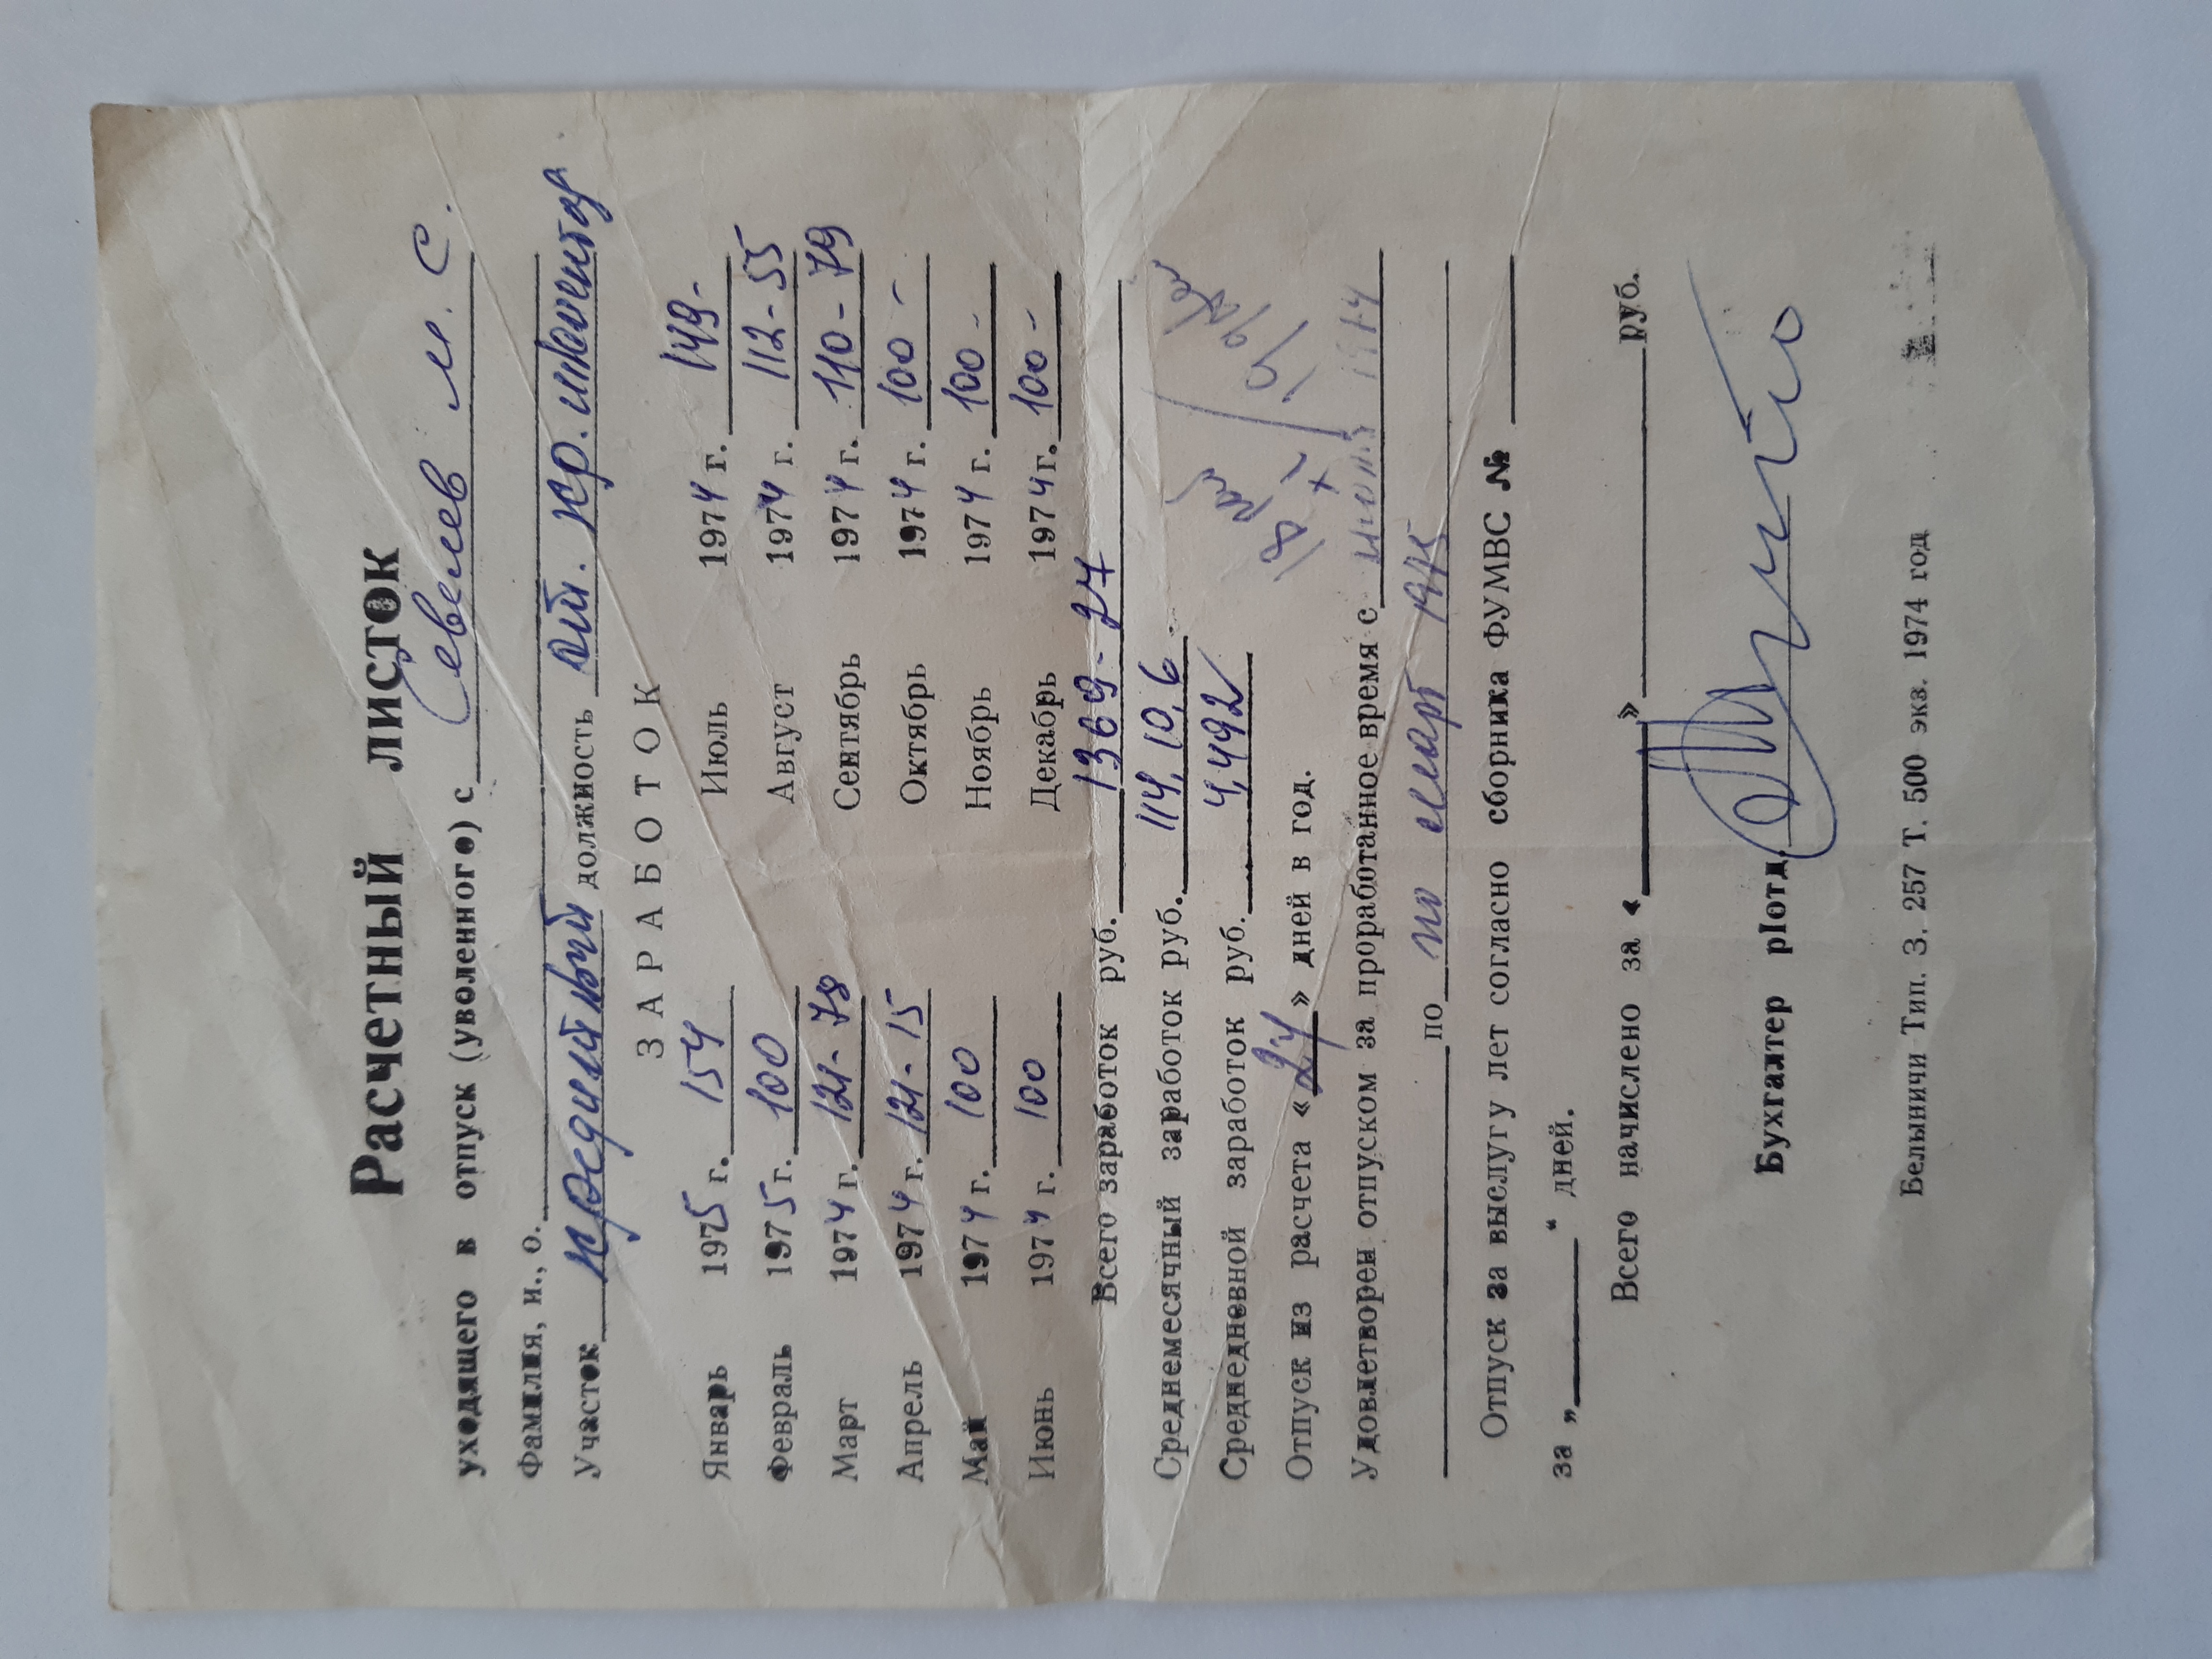 Расчетный листок
уходящего в отпуск (уволенного) с Севелев М. С.
Фамилия, и., о.
Участок проектный должность ст. пр. инженер
ЗАРАБОТОК
Январь 1975 г. 154 Июль 1974 г. 149-
Февраль 1975 г. 100 Август 1974 г. 112-55
Март 1974 г. 121-78 Сентябрь 1974 г. 110-79
Апрель 1974 г. 121-15 Октябрь 1974 г. 100-
Май 1974 г. 100 Ноябрь 1974 г. 100-
Июнь 1974 г. 100 Декабрь 1974 г. 100-
Всего заработок руб. 1369-27
Среднемесячный заработок руб. 114,10,6
Среднедневной заработок руб. 4,492
Отпуск из расчета « 24 » дней в год.
Удовлетворен отпуском за проработанное время с 1974
по по март 1975
Отпуск за выслугу лет согласно сборника ФУМВС №
за „ “ дней.
Всего начислено за « » руб.
Бухгалтер р|отд.
Белыничи Тип. З. 257 Т. 500 экз. 1974 год